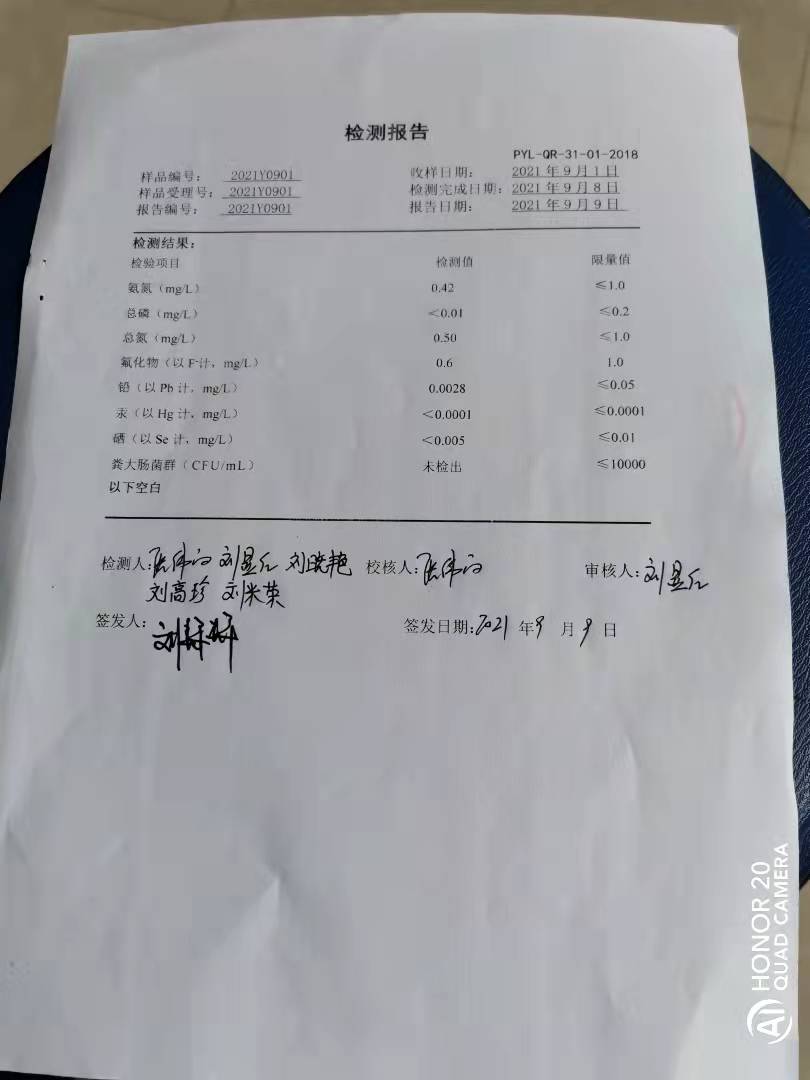 检测报告
PYL-QR-31-01-2018
样品编号： 2021Y0901 收样日期： 2021 年 9 月 1 日
样品受理号： 2021Y0901 检测完成日期： 2021 年 9 月 8 日
报告编号： 2021Y0901 报告日期： 2021 年 9 月 9 日
检测结果：
检验项目 检测值 限量值
氨氮（mg/L） 0.42 ≤1.0
总磷（mg/L） <0.01 ≤0.2
总氮（mg/L） 0.50 ≤1.0
氟化物（以 F⁻计，mg/L） 0.6 1.0
铅（以 Pb 计，mg/L） 0.0028 ≤0.05
汞（以 Hg 计，mg/L） <0.0001 ≤0.0001
硒（以 Se 计，mg/L） <0.005 ≤0.01
粪大肠菌群（CFU/mL） 未检出 ≤10000
以下空白
检测人： 刘晓艳 校核人： 审核人：
刘高珍 刘米英
签发人： 签发日期：2021 年 9 月 9 日
HONOR 20
QUAD CAMERA